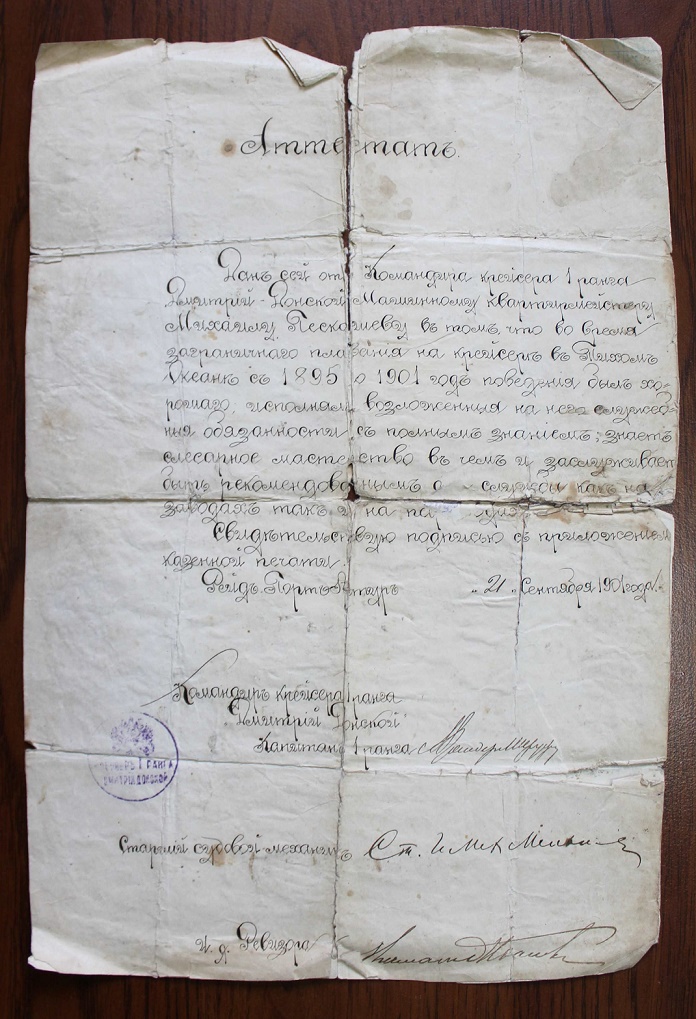 Аттестатъ.
Данъ сей отъ Командира крейсера 1 ранга
Дмитрій-Донской Машинному квартирмейстеру
Михаилу въ томъ, что во время
заграничнаго плаванія на крейсерѣ въ Тихомъ
Океанѣ съ 1895 по 1901 годъ поведенія былъ хо-
рошаго, исполнялъ возложенныя на него служеб-
ныя обязанности съ полнымъ знаніемъ; знаетъ
слесарное мастерство въ чемъ и заслуживаетъ
быть рекомендованнымъ о службы какъ на
заводахъ такъ и на
Свидѣтельствую подписью съ приложеніемъ
казенной печати.
Рейдъ. Портъ-Артуръ „21„ Сентября 1901 года.
Командиръ крейсера 1 ранга
Дмитрій Донской
Капитанъ 1 ранга
КРЕЙСЕРЪ I РАНГА
ДМИТРІЙ ДОНСКОЙ
Старшій судовой механикъ Ст. И Мех
И. д. Ревизора